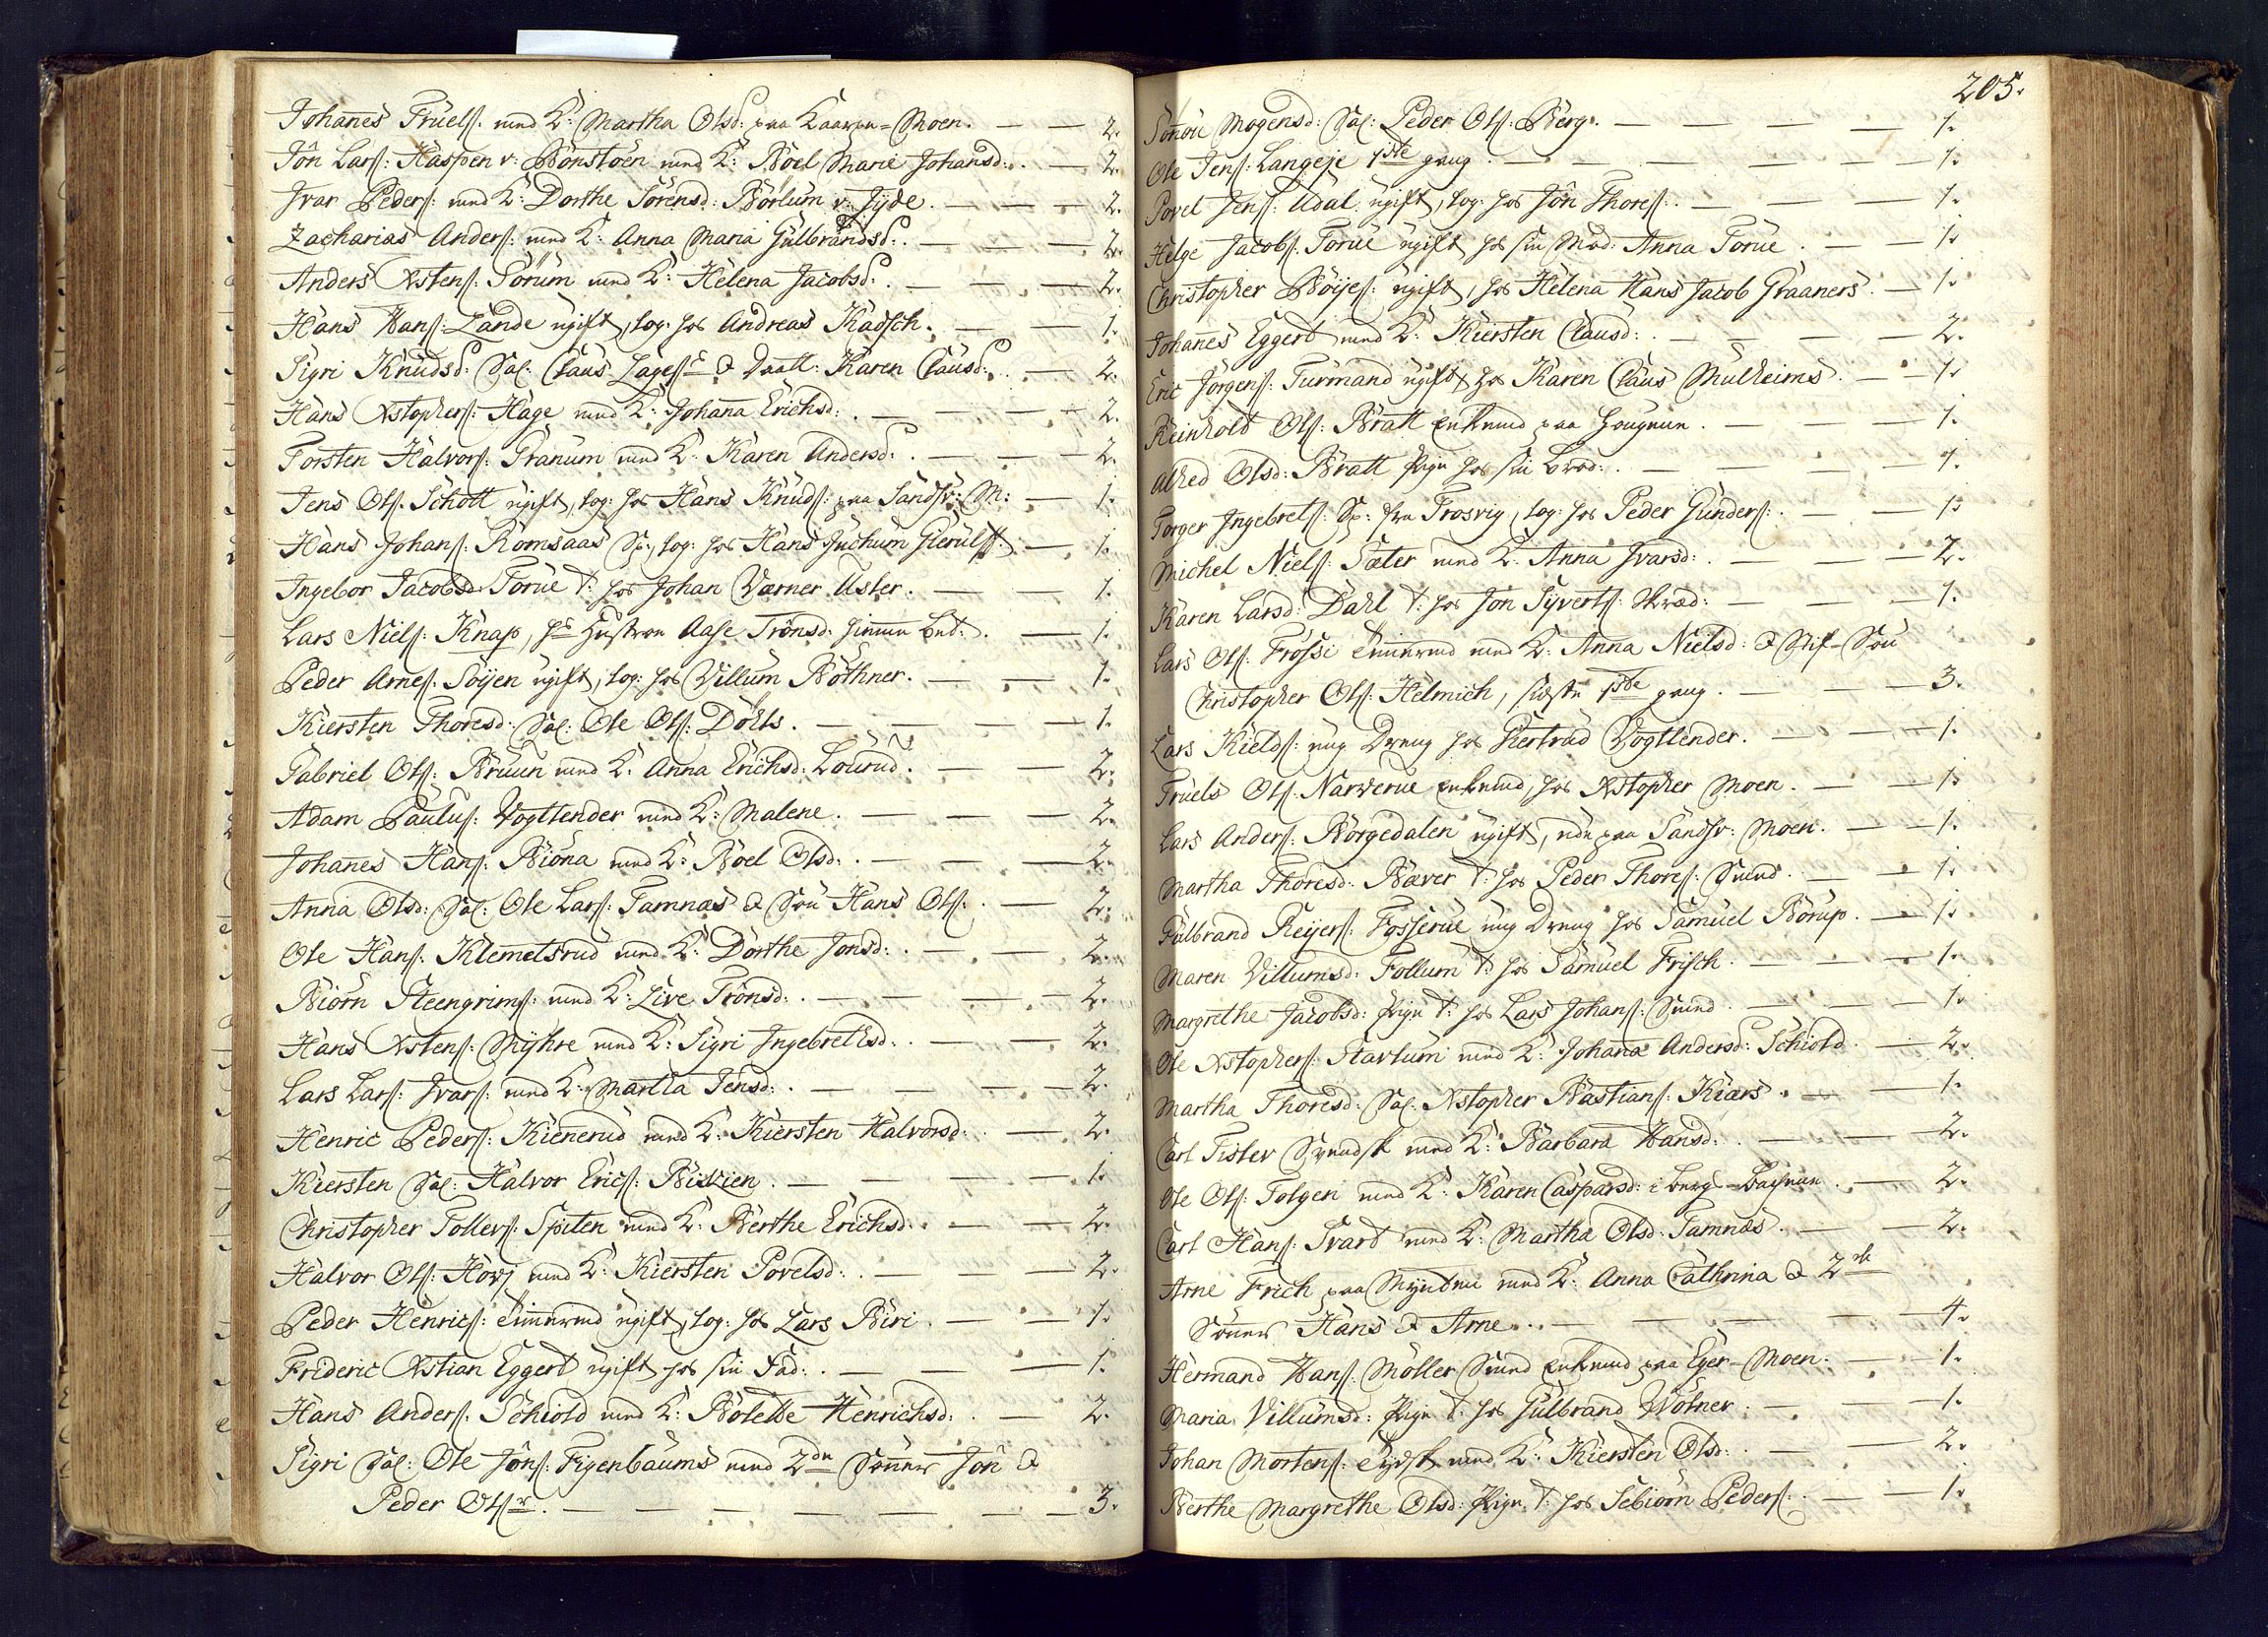 Johanes Truels. med K: Martha Olsd: paa Kaarpu=Moen. — — 2.
Jôn Lars: Haspen v: Bönstöen med K: Boel Marie Johansd: — 2.
Jvar Peders: med K: Dorthe Sörensd: Börlum v: Jyde. — — — 2.
Zacharias Anders: med K: Anna Maria Gulbrandsd: — — — 2.
Anders Xstens: Sörum med K: Helena Jacobsd: — — — 2.
Hans Hans: Lande ugift, log: hos Andreas Kadsch. — — 1.
Sigri Knudsd: Sal: Claus Lages & Daatt: Karen Clausd: — 2.
Hans Xstophers: Hage med K: Johana Erichsd: — — — 2.
Torsten Halvors: Granum med K: Karen Andersd: — — — 2.
Jens Ols: Schott ugift, log: hos Hans Knuds: paa Sandsv: M: — 1.
Hans Johans: Romsaas Sp: log: hos Hans Juchum Gierulff. — 1.
Ingebor Jacobsd: Torue t: hos Johan Værner Usler. — — 1.
Lars Niels: Knap, hs Hustroe Aase Trönsd: himme bet: — 1.
Peder Arnes: Söyen ugift, log: hos Villum Böthner. — — 1.
Kiersten Thoresd: Sal: Ole Ols: Döhls. — — — 1.
Gabriel Ols: Bruun med K: Anna Erichsd: Lourud. — — 2.
Adam Paulus: Vogtlender med K: Malene. — — — 2.
Johanes Hans: Biöna med K: Boel Olsd: — — — 2.
Anna Olsd: Sal: Ole Lars: Tamnæs & Sön Hans Ols: — 2.
Ole Hans: Klemetsrud med K: Dorthe Jonsd: — — — 2.
Biörn Steengrims: med K: Live Trönsd: — — — 2.
Hans Xstens: Myhre med K: Sigri Ingebrethsd: — — 2.
Lars Lars: Jvars: med K: Martha Jensd: — — — 2.
Henric Peders: Kienerud med K: Kiersten Halvorsd: — 2.
Kiersten Sal: Halvor Erics: Bisvien. — — — 1.
Christopher Tollers: Spiten med K: Berthe Erichsd: — — 2.
Halvor Ols: Hovj med K: Kiersten Povelsd: — — — 2.
Peder Henrics: Timmermd ugift, log: hos Lars Biri. — — 1.
Frideric Xstian Eggert ugift hos sin Fad: — — — 1.
Hans Anders: Schiold med K: Bolette Henrichsd: — 2.
Sigri Sal: Ole Jôns: Figenbaums med 2de Sönner Jôn &
Peder Olsr. — — — — — 3.
205.
Sönou Mogensd: Sal: Peder Ols: Bergs. — — — 1.
Ole Jens: Langeje 1ste gang. — — — 1.
Povel Jens: Udal ugift, log: hos Jôn Thores: — — — 1.
Helge Jacobs: Torue ugift hos sin Mod: Anna Torue. — — 1.
Christopher Böijes: ugift, hos Helena Hans Jacob Graaners. — 1.
Johanes Eggert med K: Kiersten Clausd: — — — 2.
Eric Jörgens: Turmand ugift hos Karen Claus Mulheims. — 1.
Reinhold Ols: Bratt Enkemd paa Hougene. — — — 1.
Alhed Olsd: Bratt Pige hos sin Brod: — — — 1.
Torger Ingebrets: Sp: fra Trosvig, log: hos Peder Gunders: — — 1.
Michel Niels: Sæter med K: Anna Jvarsd: — — — 2.
Karen Larsd: Dahl t: hos Jon Syverts: Skræd: — — — 1.
Lars Ols: Frössi Timmermd med K: Anna Nielsd: & Stif=Sön
Christopher Ols: Helmich, sidste 1ste gang. — — 3.
Lars Kields: ung Dreng hos Giertrud Vogtlender. — — 1.
Truels Ols: Narverue Enkemd, hos Xstopher Moen. — — 1.
Lars Anders: Börgedalen ugift, nde paa Sandsv: Moen. — 1.
Martha Thoresd: Bæver t: hos Peder Thores: Smed. — — 1.
Gulbrand Reijers: Fosserue ung Dreng hos Samuel Börup. — 1.
Maren Villumsd: Follum t: hos Samuel Frisch. — — — 1.
Margrethe Jacobsd: Pige t: hos Lars Johans: Smed. — — — 1.
Ole Xstophers: Starlum med K: Johana Andersd: Schiold — 2.
Martha Thoresd: Sal: Xstopher Bastians: Kiærs. — — 1.
Carl Fisler Svendsk med K: Barbara Hansd: — — — 2.
Ole Ols: Tolgen med K: Karen Caspersd: i berg=bachene. — 2.
Carl Hans: Svart med K: Martha Olsd: Tamnæs. — — 2.
Arne Frich paa Myntene med K: Anna Cathrina & 2de
Sönner Hans & Arne. — — — — 4.
Hermand Hans: Möller Smed Enkemd paa Eger=Moen. — 1.
Maria Villumsd: Pige t: hos Gulbrand Wölner. — — 1.
Johan Mortens: Tydsk med K: Kiersten Olsd: — — 2.
Berthe Margrethe Olsd: Pige t: hos Sebiörn Peders: — — 1.